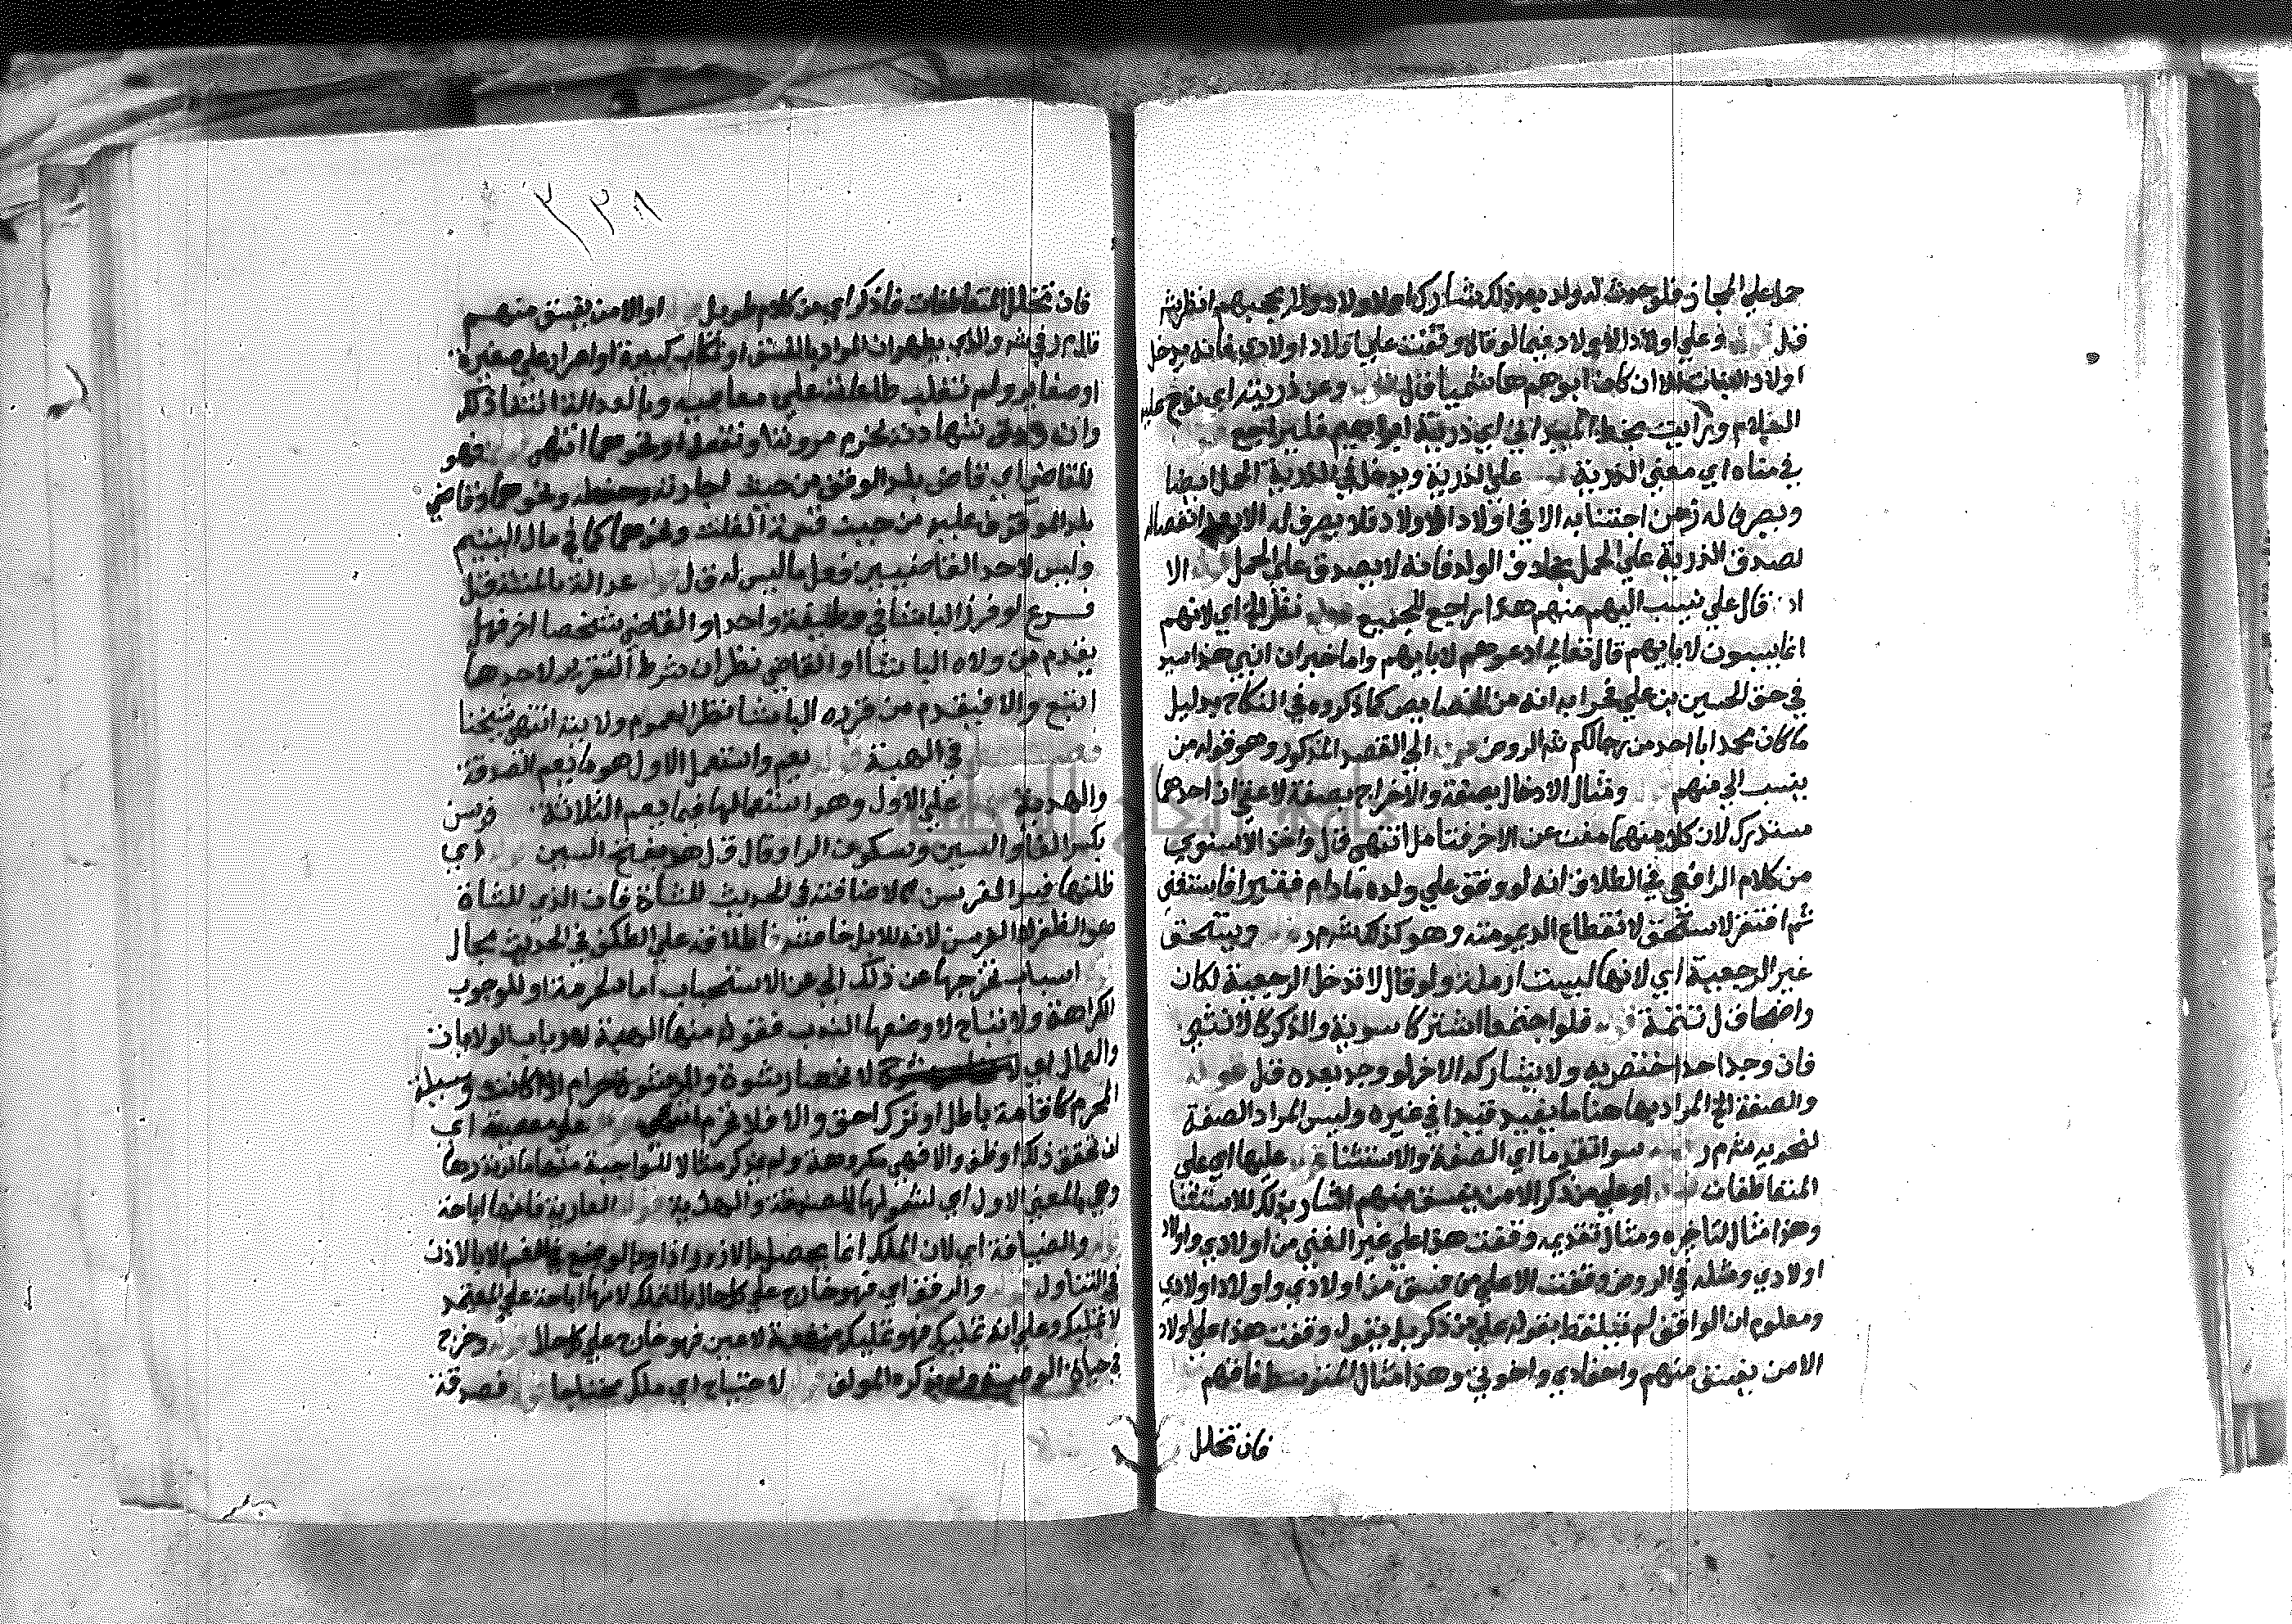 حملا علي المجاز فلو حدث له ولد بعد ذلك شارك اولاد الاولاد ولا يحجبهم
قل وعلي اولاد الاولاد فيما لو قال وقفت علي اولاد اولادي فانه يدخل
اولاد البنات الا ان كان ابوهم هاشميا قل وعن ذريته اي نوح عليه
السلام ورايت بخط الميداني اي ذرية ابراهيم فليراجع
في معناه اي معني الذرية علي الذرية ويدخل في الذرية الحمل ايضا
ويصرف له زمن اجتنابه الا في اولاد الاولاد فلا يصرف له الا بعد انفصاله
لصدق الذرية علي الحمل بخلاف الولد فانه لا يصدق علي الحمل الا
ان قال علي من ينسب اليهم منهم هذا راجع للجميع نظرا الي اي لانهم
انما ينسبون لابايهم قال تعالي ادعوهم لابايهم واما خبر ان ابني هذا سيد
في حق الحسين بن علي فجوابه انه من الخصايص كما ذكروه في النكاح بدليل
ما كان محمد ابا احد من رجالكم شرح الروض الي القصد المذكور وهو قوله من
ينسب الي منهم ومثال الادخال بصفة والاخراج بصفة لا يخفي ان احدهما
مستدرك لان كلا منهما مغن عن الاخر فتامل انتهي قل واخذ الاسنوي
من كلام الرافعي في الطلاق انه لو وقف علي ولده ما دام فقيرا فاستغني
ثم افتقر لا يستحق لانقطاع الديمومة وهو كذلك شرح م ر ويستحق
غير الرجعية اي لانها ليست ارملة ولو قال لا تدخل الرجعية لكان
واضحا ق ل تتمة فلو اجتمعا اشتركا سوية والذكر كالانثي
فان وجد احدا اختص به ولا يشاركه الاخر لو وجد بعده قل
والصفة الخ المراد بها هنا ما يفيد قيدا في غيره وليس المراد الصفة
النحوية شرح م ر سوا تقدما اي الصفة والاستثنا عليها اي علي
المتعاطفات او علي من ذكر الا من يفسق منهم اشار بذلك للاستثنا
وهذا مثال لتاخره ومثال تقديمه وقفت هذا علي غير الغني من اولادي واولاد
اولادي ومثله في الروض وقفت الا علي من فسق من اولادي واولاد اولادي
ومعلوم ان الواقف لم يتلفظ بقوله علي من ذكر بل يقول وقفت هذا علي اولادي
الا من يفسق منهم واحفادي واخوتي وهذا مثال المتوسط فافهم
فان تخلل
٣٣٨
فان تخلل المتعاطفات فاذكر اي من كلام طويل او الا من يفسق منهم
قال م ر في شرحه والذي يظهر ان المراد بالفسق ارتكاب كبيرة او اصرار علي صغيرة
او صغاير ولم تغلب طاعاته علي معاصيه وبالعدالة انتفا ذلك
وان ردت شهادته لخرم مروءة او تغفل او نحوهما انتهي فهو
للقاضي اي قاضي بلد الوقف من حيث اجارته وحفظه ونحوهما وقاضي
بلد الموقوف عليه من حيث قسمة الغلة ونحوهما كما في مال اليتيم
وليس لاحد القاضيين فعل ما ليس له ق ل عدالة بالمنظر قل
فرع لو قرر الباشا في وظيفة واحدا والقاضي شخصا اخر فهل
يقدم من ولاه الباشا او القاضي نظر ان شرط التقرير لاحدهما
اتبع والا فيقدم من قرره الباشا نظر العموم ولايته انتهي شيخنا
فصل في الهبة يعم واستعمل الاول هو ما يعم الصدقة
والهدية علي الاول وهو استعمالها فيما يعم الثلاثة فرسن
بكسر الفا والسين وسكون الرا وقال ق ل هو بفتح السين اي
ظلفها فسر الفرسن به لاضافته في الحديث للشاة فان الذي للشاة
هو الظلف لا الفرسن لانه للابل خاصة فاطلاقه علي الظلف في الحديث مجاز
اسباب تخرجها عن ذلك الي عن الاستحباب اما للحرمة او للوجوب
الكراهة ولا يتاح لا وضعها الندب فقوله منها الهبة لارباب الولايات
والعمال اي لا نحصار رشوة والرشوة حرام اذا كانت وسيلة
لمحرم كاقامة باطل او ترك حق والا فلا تحرم انتهي علي معصية اي
ان تحقق ذلك او ظن والا فهي مكروهة ولم يذكر مثالا للواجبة منها ما لو نذرها
وهي بالمعني الاول اي لشمولها للصدقة والهدية العارية فانها اباحة
والضيافة اي لان الملك انما يحصل بالازدراد او بالوضع في الفم الا بالاذن
في التناول والوقف اي فهو خارج علي كل حال بالتمليك لانها اباحة علي المعتمد
لا تمليك وعلي انه تمليك فهو تمليك منفعة لا عين فهو خارج علي كل حال وخرج
في حياة الوصية ولم يذكره المولف لاحتياج اي ملك محتاجا فصدقة